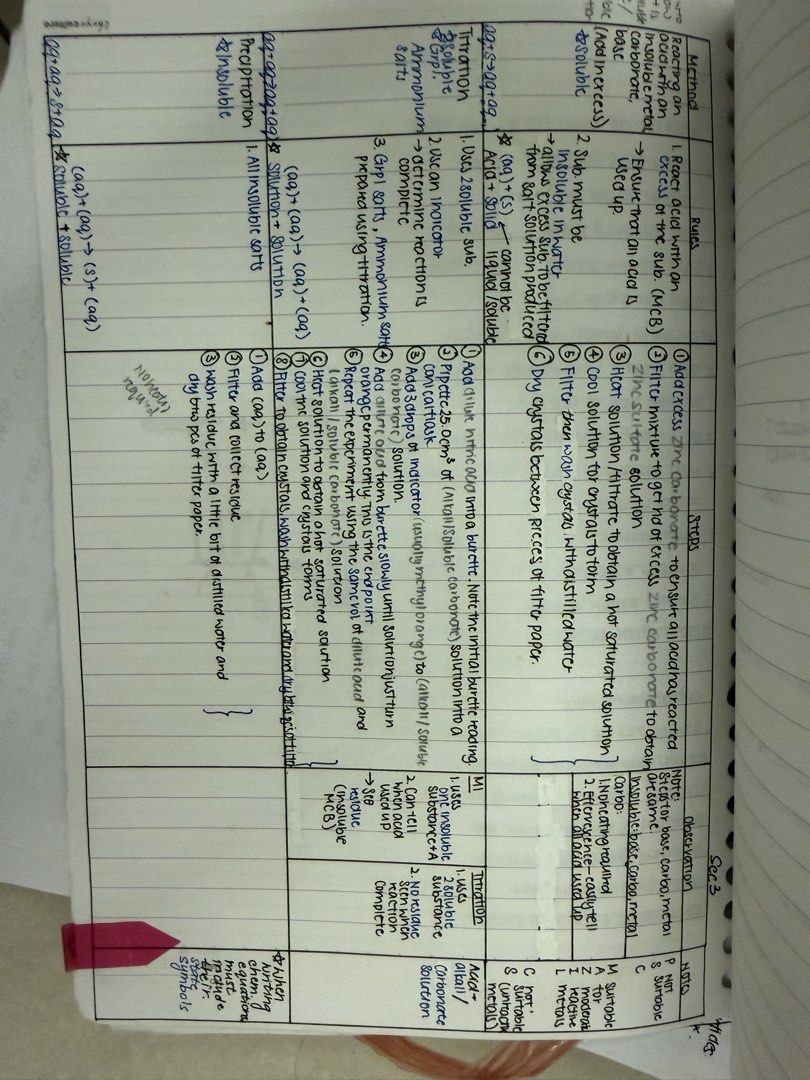 Sec 3
Method
Rules
Steps
Observation
Notes
Reacting an
acid with an
insoluble metal,
carbonate,
base
(Add in excess)
☆soluble
aq+s→aq+aq
1. React acid with an
excess of the sub. (MCB)
→ Ensure that all acid is
used up.
2. Sub. must be
insoluble in water
→ allows excess sub. to be filtered
from salt solution produced
☆ (aq)+(s) ← cannot be
Acid + solid liquid/soluble
① Add excess zinc carbonate to ensure all acid has reacted
② Filter mixture to get rid of excess zinc carbonate to obtain
zinc sulfate solution
③ Heat solution/filtrate to obtain a hot saturated solution
④ Cool solution for crystals to form
⑤ Filter then wash crystals with distilled water
⑥ Dry crystals between pieces of filter paper.
Note:
Steps for base, carbo, metal
are same
Insoluble: base, carbo, metal
Carbo:
1. No heating required
2. Effervescence - easily tell
when all acid used up
P Not
S suitable
C
M suitable
A for
Z moderate
I reactive
L metals
C not
S suitable
metals)
Titration
☆soluble
Grp1,
Ammonium
salts
aq+aq→aq+aq
1. Uses 2 soluble sub.
2. Use an indicator
→ determine reaction is
complete
3. Grp1 salts, Ammonium salts
prepared using titration.
(aq)+(aq)→(aq)+(aq)
☆ solution + solution
① Add dilute nitric acid into a burette. Note the initial burette reading.
② Pipette 25.0cm³ of (alkali/soluble carbonate) solution into a
conical flask
③ Add 3 drops of indicator (usually methyl orange) to (alkali/soluble
carbonate) solution.
④ Add dilute acid from burette slowly until solution just turn
orange permanently. This is the endpoint
⑤ Repeat the experiment using the same vol of dilute acid and
(alkali/soluble carbonate) solution
⑥ Heat solution to obtain a hot saturated solution
⑦ Cool the solution and crystals forms
⑧ Filter to obtain crystals, wash with distilled water and dry btw pcs of filter
M1
1. uses
one insoluble
substance + A
2. Can tell
when acid
used up
→ see
residue
(insoluble
MCB)
Titration
1. uses
2 soluble
substance
2. No residue
seen when
reaction
complete
Acid +
alkali/
carbonate
solution
Precipitation
☆insoluble
aq+aq→s+aq
1. All insoluble salts
(aq)+(aq)→(s)+(aq)
☆ soluble + soluble
① Add (aq) to (aq)
② Filter and collect residue
③ Wash residue with a little bit of distilled water and
dry btw pcs of filter paper.
☆When
writing
chem
equations
must
include
their
state
symbols